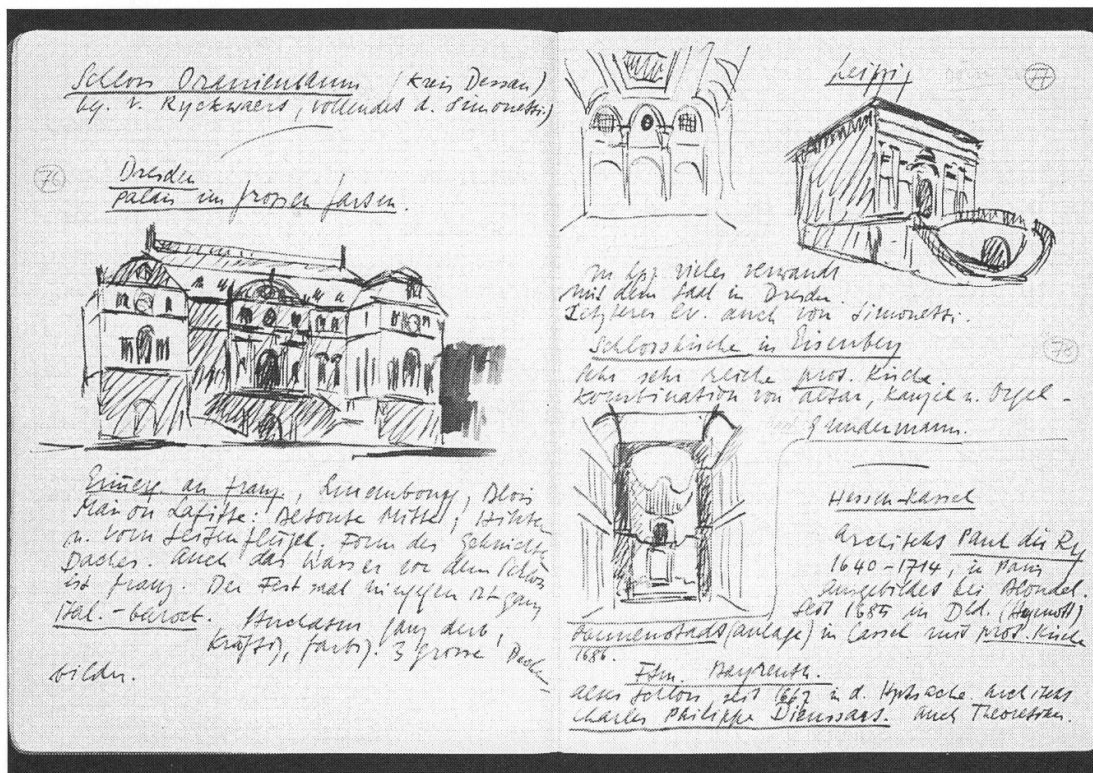 Schloss Oranienbaum (Kreis Dessau)
bg. v. Ryckwaers, vollendet d. Simonetti)
76
Dresden
Palais im grossen Garten.
Erinnere an franz., Luxembourg, Blois
Maison Lafitte: Betonte Mitte, hintere
u. vorn Seitenflügel. Form des geknickten
Daches. Auch das Wasser vor dem Schloss
ist franz. Der Festsaal hingegen ist ganz
ital.-barock. ganz derb,
kräftig, farbig. 3 grosse
bilder.
Leipzig
77
In Lpz vieles verwandt
mit dem Saal in Dresden.
Letzteres ev. auch von Simonetti.
Schlosskirche in Eisenberg
78
Sehr sehr reiche prot. Kirche.
Kombination von Altar, Kanzel u. Orgel -
Gundermann.
Hessen-Kassel
Architekt Paul du Ry
1640-1714, in Paris
ausgebildet bei Blondel.
Seit 1685 in Dld. (Hugenott)
(anlage) in Cassel mit prot. Kirche
1686.
Fstm. Bayreuth.
altes Schloss seit 1667 in d. Hptsache. Architekt
Charles Philippe Dieussart. Auch Theoretiker.